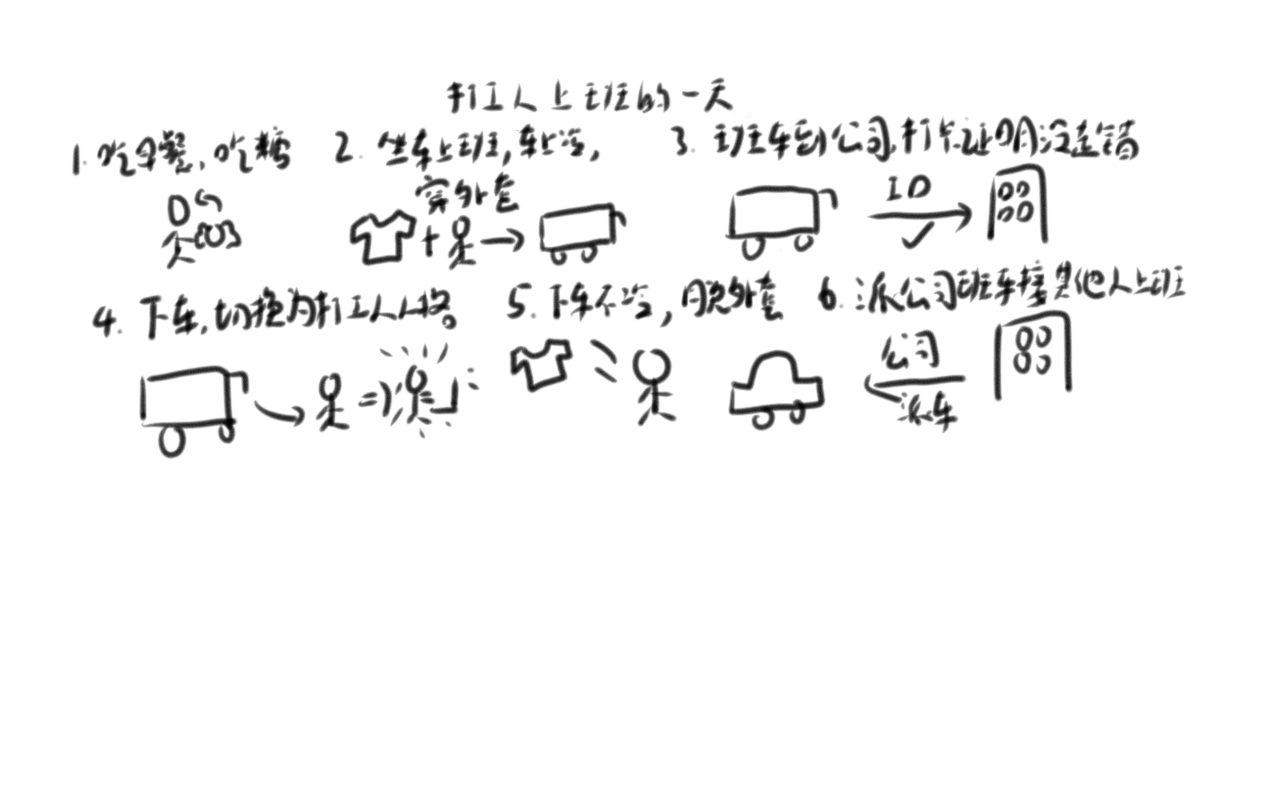 打工人上班的一天
1. 吃早餐，吃糖
2. 坐车上班，车上冷，
穿外套
3. 班车到公司，打卡证明没走错
ID
4. 下车，切换为打工人人格。
5. 下车不冷，脱外套
6. 派公司班车接其他人上班
公司
派车